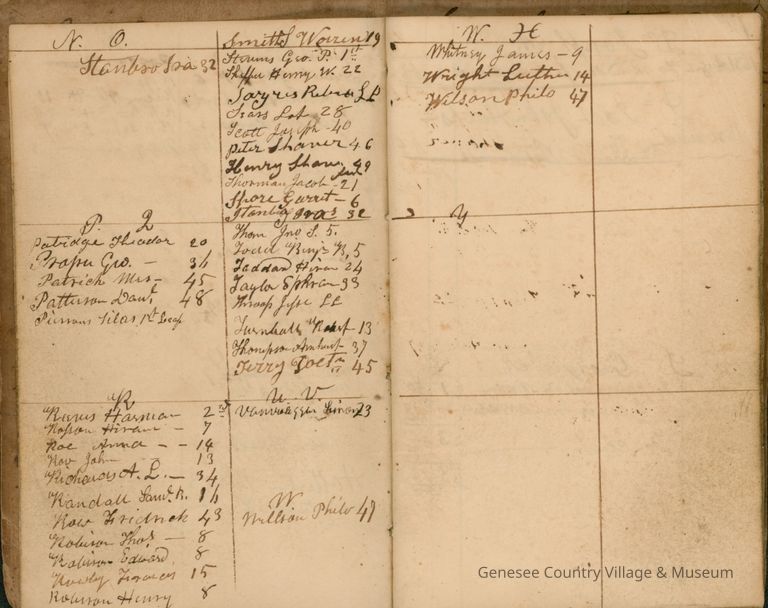 N. O.
Stanbro Ira 32
P. Q
Patridge Theodor 20
Proper Geo. — 36
Patrick Mrs — 45
Patterson Danl 48
Piersons Silas, 1st Leaf
R,
Reeves Harmon 2
Rosson Hiram — 7
Roe Anna — — 14
Rov John 13
Richards A. L. — 34
Randall Saml. R. 16
Row Fridrick 43
Robison Thos — 8
Robison Edward, 8
Francis 15
Robison Henry 8
Smith S Warren 19
Stevens Geo. P. 1st
Henry W. 22
Sayres L P
Sears Lot 28
Scott Joseph - 40
Peter Shaver 46
Henry Shaw. 49
Jacob 21
Shore Garret - 6
Stanbro Ira 32
Thom Jno S. 5.
Todd Benj R, 5
Taddan Hiram 24
Taylor Ephram 33
Throop L L
Turnbull Robert 13
Thompson 37
Terry 45
U. V.
Simon 23
W
Willson Philo 47
W. H
Whitney James — 9
Wright Luther 14
Wilson Philo 47
Y
Genesee Country Village & Museum